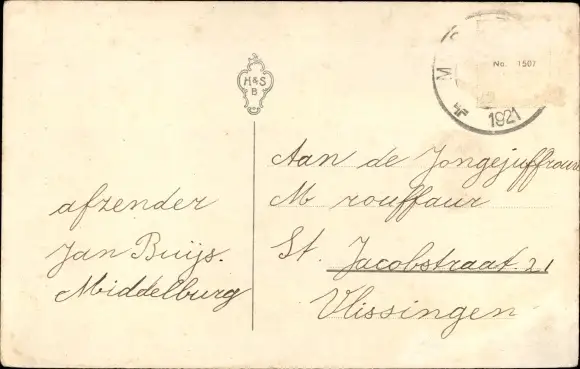 H&S
B
M
No. 1507
1921
Aan de Jongejuffrouw
M rouffaur
St. Jacobstraat. 21
Vlissingen
afzender
Jan Buijs.
Middelburg